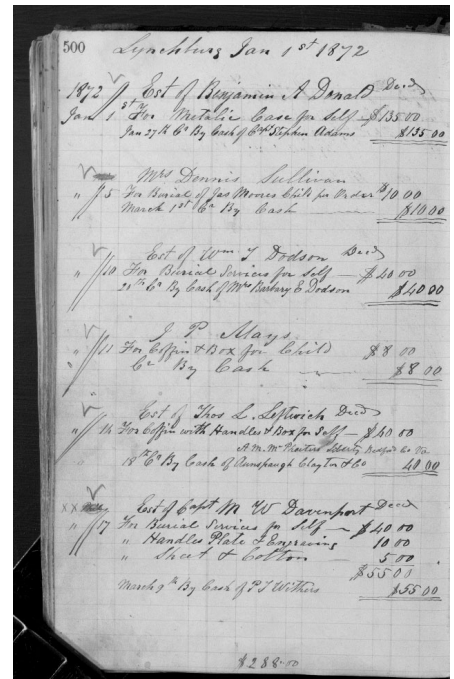 500
Lynchburg Jan 1st 1872
1872 Est of Benjamin A Donald Decd
Jan 1st For Metalic Case for Self — $135.00
Jan 27th Cr By Cash of Stephen Adams $135 00
Mrs Dennis Sullivan
" 5 For Burial of Jas Moores Child per Order $10 00
March 1st Cr By Cash $10 00
Est of Wm T Dodson Decd
" 10 For Burial Services for Self — $40 00
Cr By Cash of Mrs Barbary E Dodson $40 00
J P Mays
" 11 For Coffin & Box for Child $8 00
Cr By Cash $8 00
Est of Thos L. Leftwich Decd
" 14 For Coffin with Handles & Box for Self — $40 00
A. M. Liberty Co Va
18th Cr By Cash of Clayton & Co 40 00
Est of Capt M W Davenport Decd
" 17 For Burial Services for Self — $40 00
" Handles Plate & Engraving 10 00
" Sheet & Cotton — 5 00
$55 00
March 9th By Cash of P T Withers $55 00
$288.00